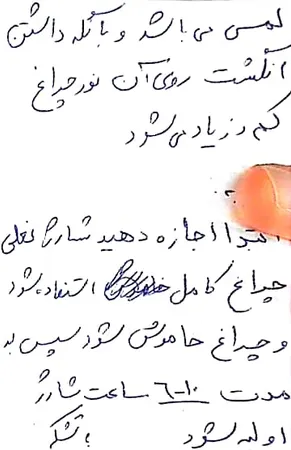 لمسی می باشد و با نگه داشتن
انگشت روی آن نور چراغ
کم و زیاد می شود
ابتدا اجازه دهید شارژ فعلی
چراغ کامل استفاده شود
و چراغ خاموش شود سپس به
مدت ۱۰-۶ ساعت شارژ
اولیه شود